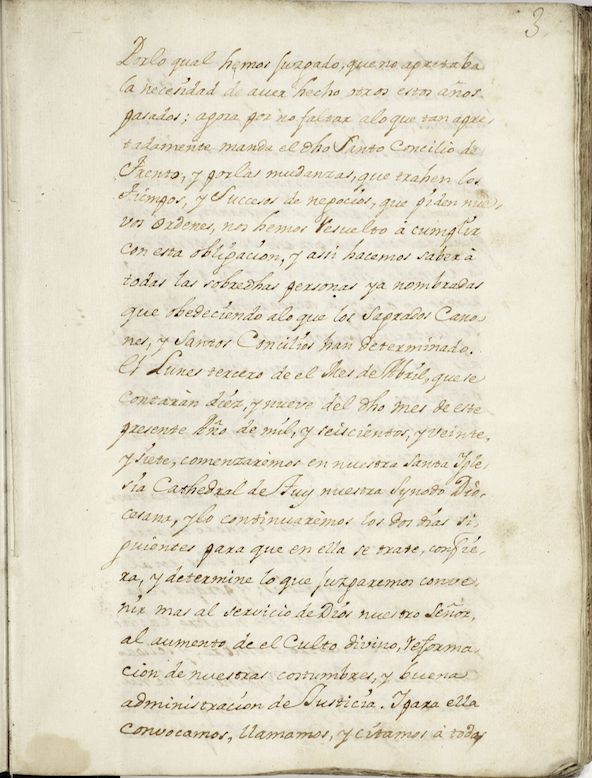 3
Porlo qual hemos juzgado, que no apretaba
la necesidad de aver hecho otros estos años
pasados; agora por no faltar alo que tan apre-
tadamente manda el dho Santo Concilio de
Trento, y por las mudanzas, que trahen los
Tiempos, y Sucesos de negocios, que piden nue-
vos ordenes, nos hemos resuelto à cumplir
con esta obligacion, y assi hacemos saber à
todas las sobredhas personas ya nombradas
que obedeciendo alo que los Sagrados Cano-
nes, y Santos Concilios han determinado.
El Lunes tercero de el Mes de Abril, que se
contaràn diez, y nueve del dho mes de este
presente Año de mil, y seiscientos, y veinte,
y siete, comenzarèmos en nuestra Santa Igle-
sia Cathedral de Tuy nuestra Synodo Dio-
cesana, y lo continuarèmos los dos dias si-
guientes para que en ella se trate, confie-
ra, y determine lo que juzgaremos conve-
nir mas al servicio de Dios nuestro Señor,
al aumento de el Culto divino, reforma-
cion de nuestras costumbres, y buena
administracion de Justicia. Ipara ella
convocamos, llamamos, y citamos à todas